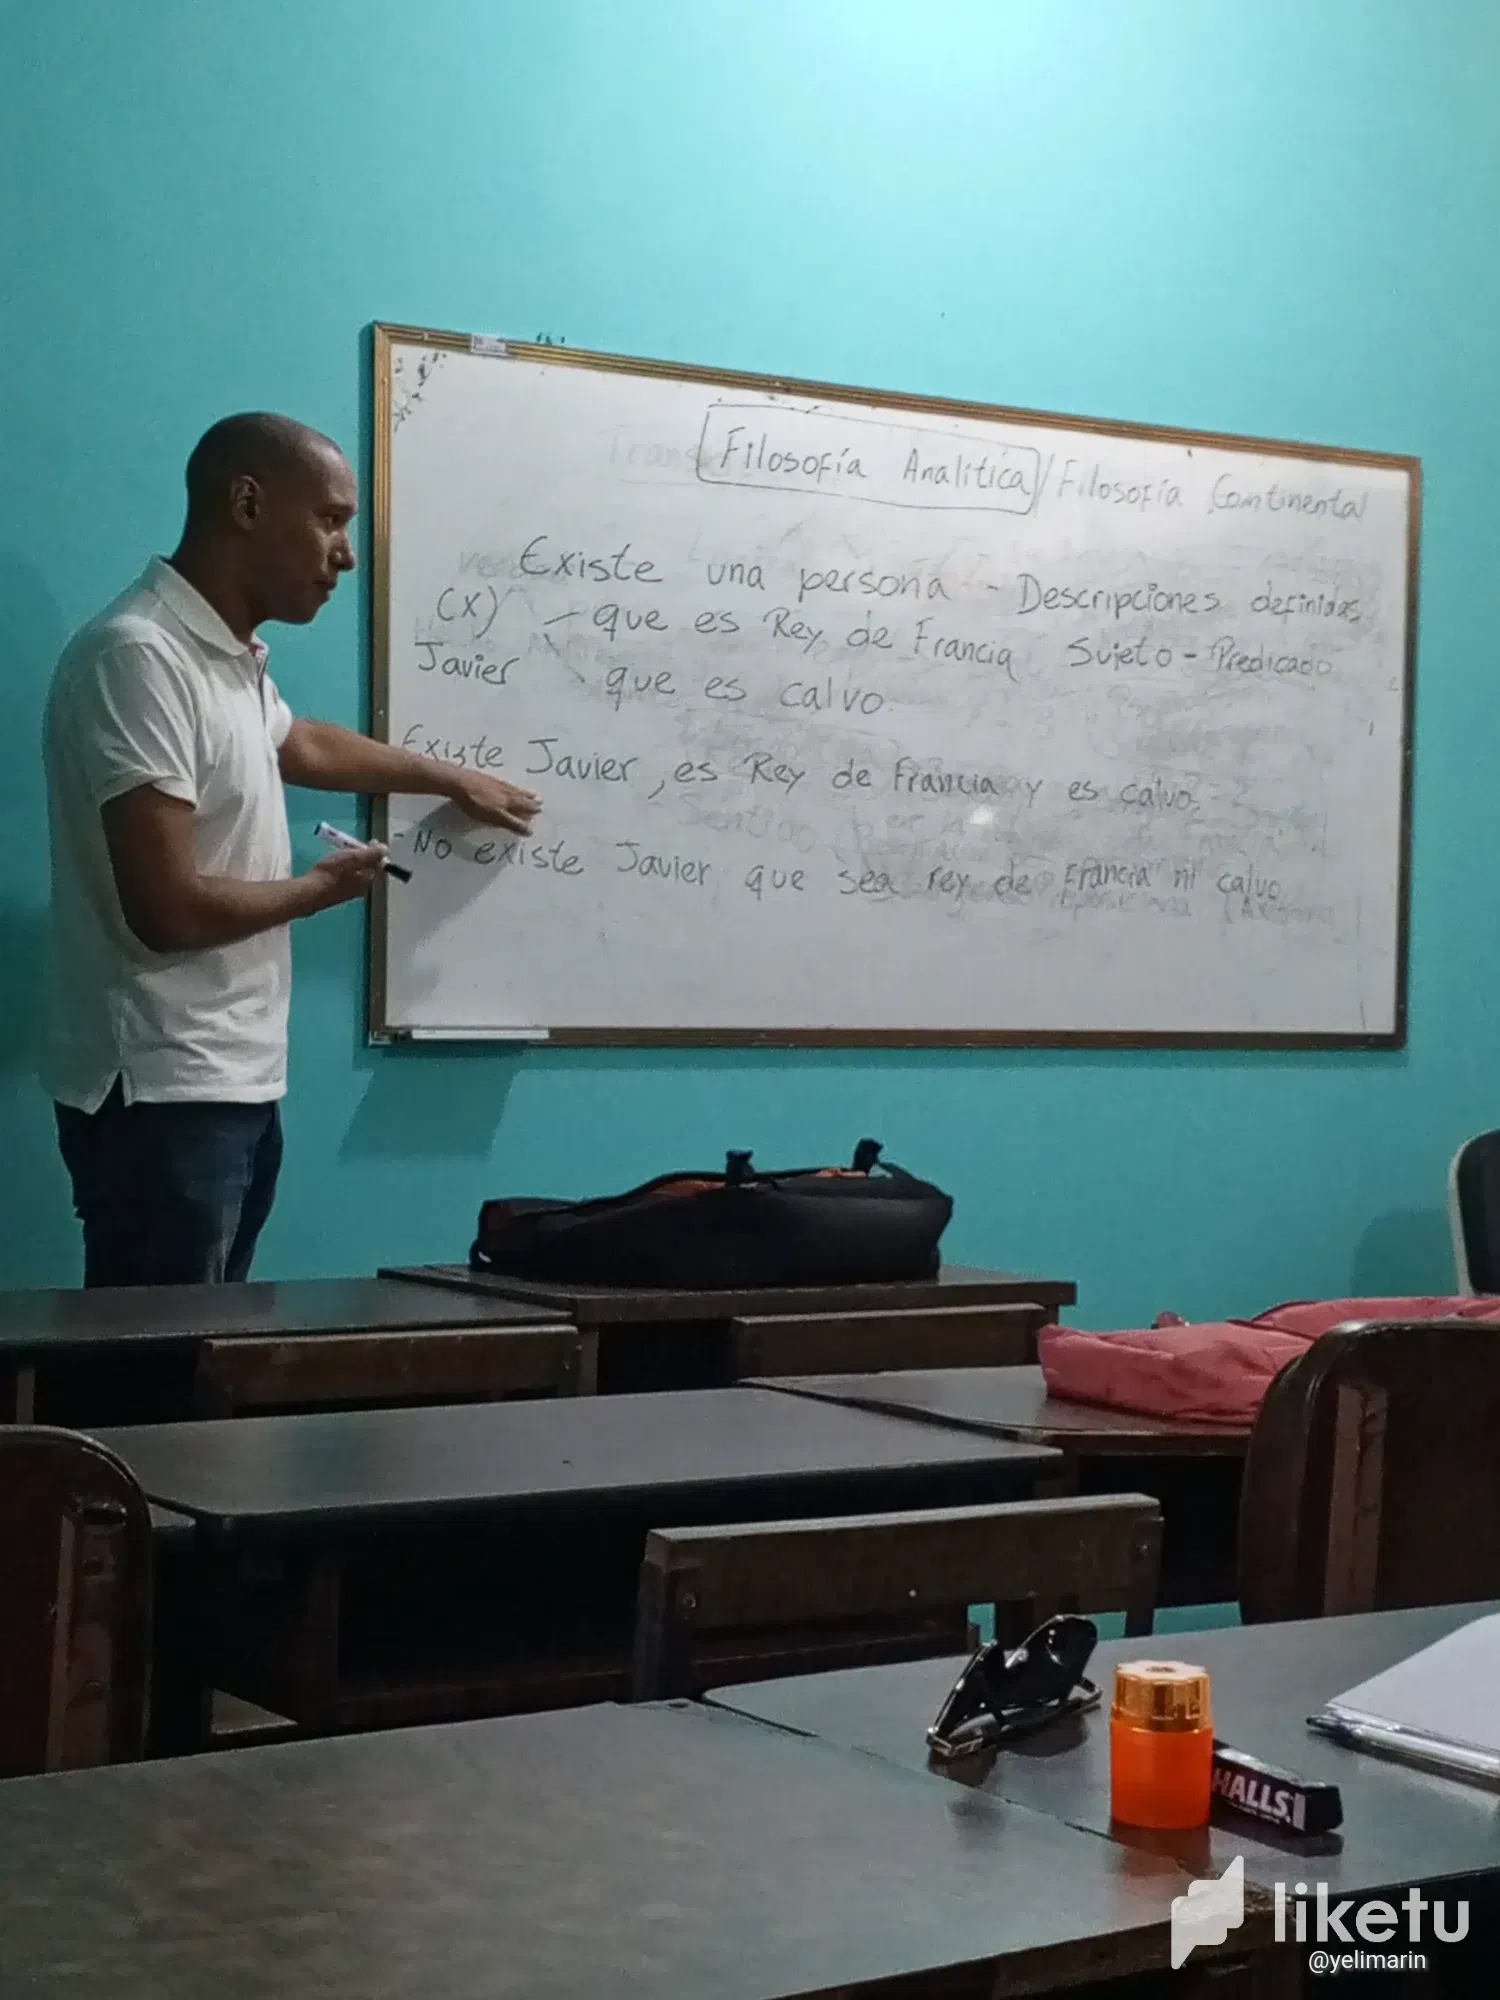 Filosofía Analítica / Filosofía Continental
Existe una persona - Descripciones definidas
(x) - que es Rey de Francia Sujeto - Predicado
Javier - que es calvo.
Existe Javier, es Rey de Francia y es calvo.
- No existe Javier que sea rey de Francia ni calvo
HALLS
liketu
@yelimarin